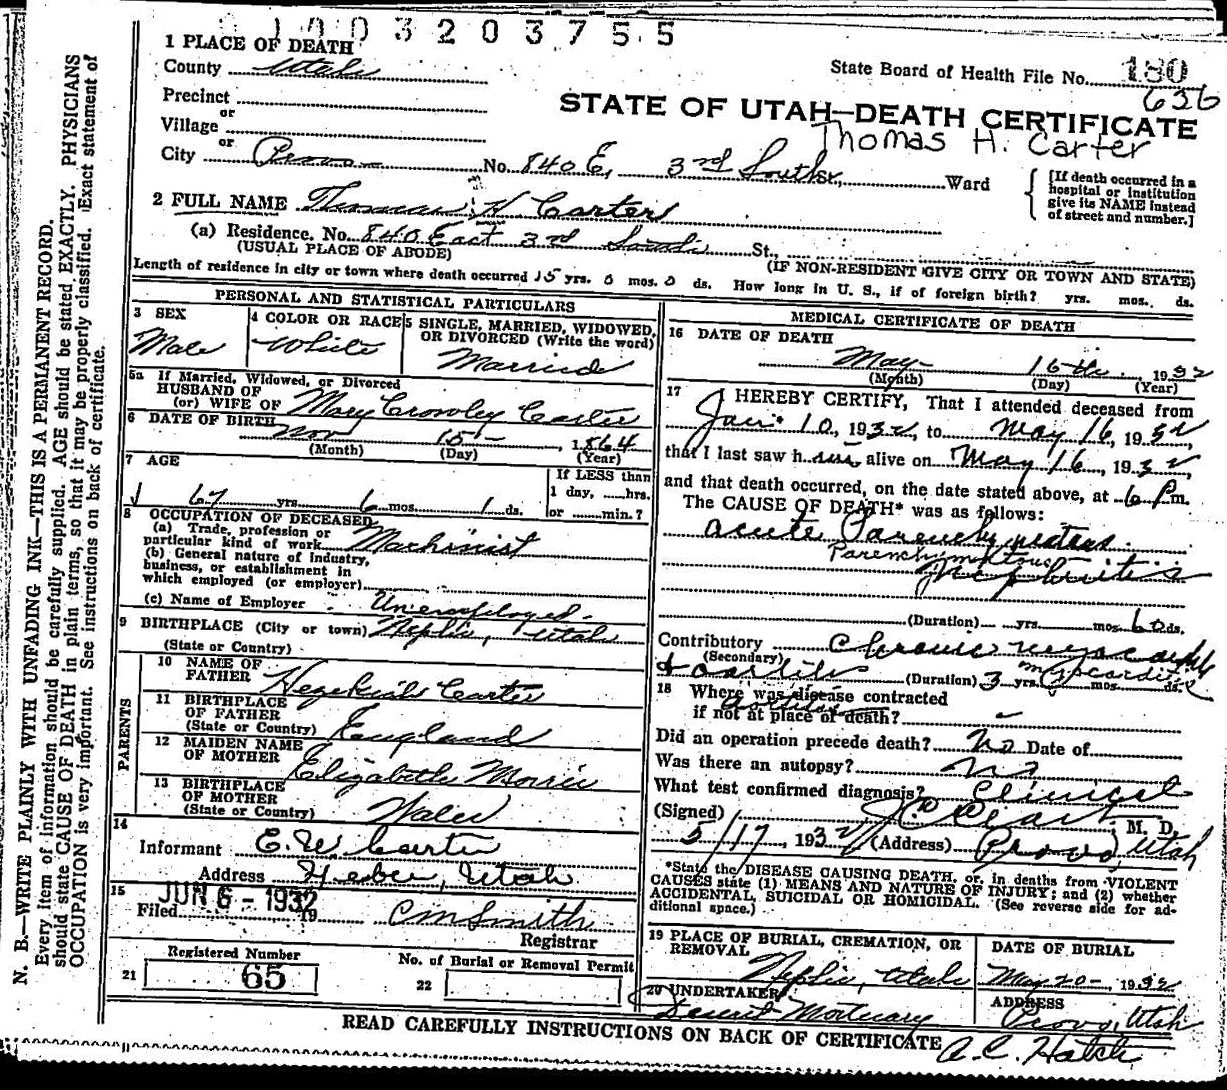 1003203755
1 PLACE OF DEATH
County Utah
State Board of Health File No. 180
636
Precinct
or
STATE OF UTAH—DEATH CERTIFICATE
Village
or
Thomas H. Carter
City Provo No. 840 E, 3rd South St., Ward
[If death occurred in a hospital or institution give its NAME instead of street and number.]
2 FULL NAME Thomas H Carter
(a) Residence. No. 840 East 3rd South St.,
(USUAL PLACE OF ABODE) (IF NON-RESIDENT GIVE CITY OR TOWN AND STATE)
Length of residence in city or town where death occurred 15 yrs. 0 mos. 0 ds. How long in U. S., if of foreign birth? yrs. mos. ds.
PERSONAL AND STATISTICAL PARTICULARS
3 SEX
Male
4 COLOR OR RACE
White
5 SINGLE, MARRIED, WIDOWED, OR DIVORCED (Write the word)
Married
5a If Married, Widowed, or Divorced
HUSBAND OF
(or) WIFE OF Mary Crowley Carter
6 DATE OF BIRTH Nov 15- 1864
(Month) (Day) (Year)
7 AGE
67 yrs. 6 mos. 1 ds.
If LESS than
1 day, hrs.
or min.?
8 OCCUPATION OF DECEASED
(a) Trade, profession or
particular kind of work Machinist
(b) General nature of industry,
business, or establishment in
which employed (or employer)
(c) Name of Employer Unemployed.
9 BIRTHPLACE (City or town) Nephi, Utah
(State or Country)
PARENTS
10 NAME OF
FATHER Hezekiah Carter
11 BIRTHPLACE
OF FATHER
(State or Country) England
12 MAIDEN NAME
OF MOTHER Elizabeth Morris
13 BIRTHPLACE
OF MOTHER
(State or Country) Wales
14
Informant E. W. Carter
Address Heber, Utah
15 JUN 6 - 1932
Filed 19 C M Smith
Registrar
Registered Number
21 65
No. of Burial or Removal Permit
22
MEDICAL CERTIFICATE OF DEATH
16 DATE OF DEATH
May 16th, 1932
(Month) (Day) (Year)
17 I HEREBY CERTIFY, That I attended deceased from
Jan. 10, 1932, to May 16, 1932,
that I last saw h im alive on May 16, 1932
and that death occurred, on the date stated above, at 6 P.m.
The CAUSE OF DEATH* was as follows:
acute
Parenchymatous
Nephritis
(Duration) yrs. mos. 60 ds.
Contributory Chronic
(Secondary) Myocarditis
(Duration) 3 yrs. mos. ds.
18 Where was disease contracted
if not at place of death?
Did an operation precede death? No Date of
Was there an autopsy? No
What test confirmed diagnosis? Clinical
(Signed) M. D.
5/17, 1932 (Address) Provo, Utah
*State the DISEASE CAUSING DEATH, or, in deaths from VIOLENT
CAUSES state (1) MEANS AND NATURE OF INJURY; and (2) whether
ACCIDENTAL, SUICIDAL OR HOMICIDAL. (See reverse side for ad-
ditional space.)
19 PLACE OF BURIAL, CREMATION, OR
REMOVAL
Nephi, Utah
DATE OF BURIAL
May 20-, 1932
20 UNDERTAKER
Deseret Mortuary
ADDRESS
Provo, Utah
READ CAREFULLY INSTRUCTIONS ON BACK OF CERTIFICATE
A. C. Hatch
N. B.—WRITE PLAINLY WITH UNFADING INK—THIS IS A PERMANENT RECORD.
Every item of information should be carefully supplied. AGE should be stated EXACTLY. PHYSICIANS
should state CAUSE OF DEATH in plain terms, so that it may be properly classified. Exact statement of
OCCUPATION is very important. See instructions on back of certificate.